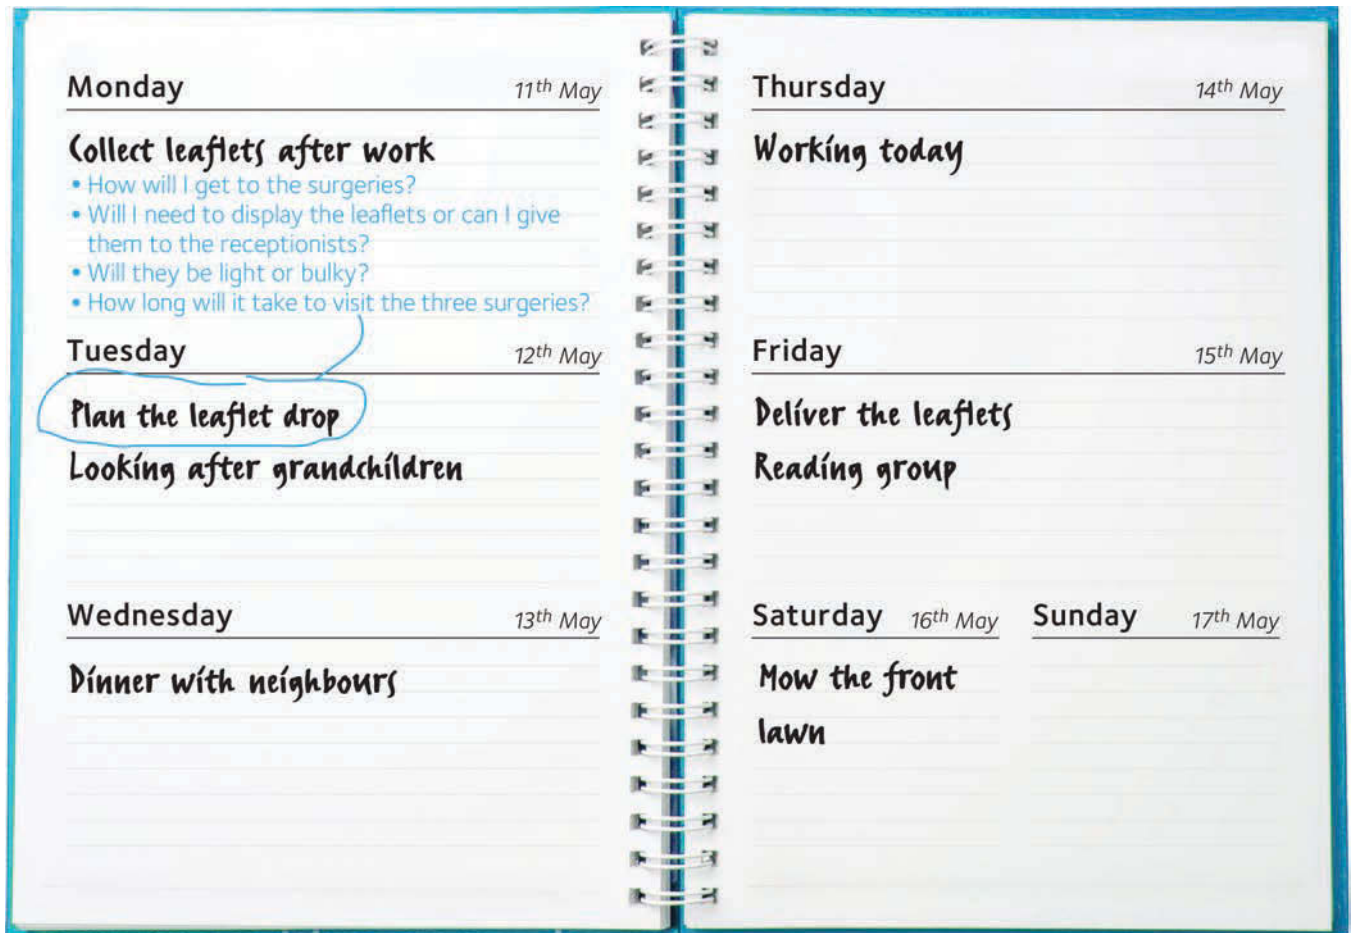 Monday 11th May
Collect leaflets after work
• How will I get to the surgeries?
• Will I need to display the leaflets or can I give
them to the receptionists?
• Will they be light or bulky?
• How long will it take to visit the three surgeries?
Tuesday 12th May
Plan the leaflet drop
Looking after grandchildren
Wednesday 13th May
Dinner with neighbours
Thursday 14th May
Working today
Friday 15th May
Deliver the leaflets
Reading group
Saturday 16th May
Mow the front
lawn
Sunday 17th May